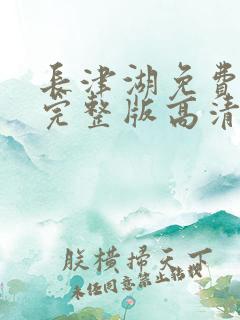 長津湖免費
完整版高清
朕橫掃天下
未经同意禁止转载